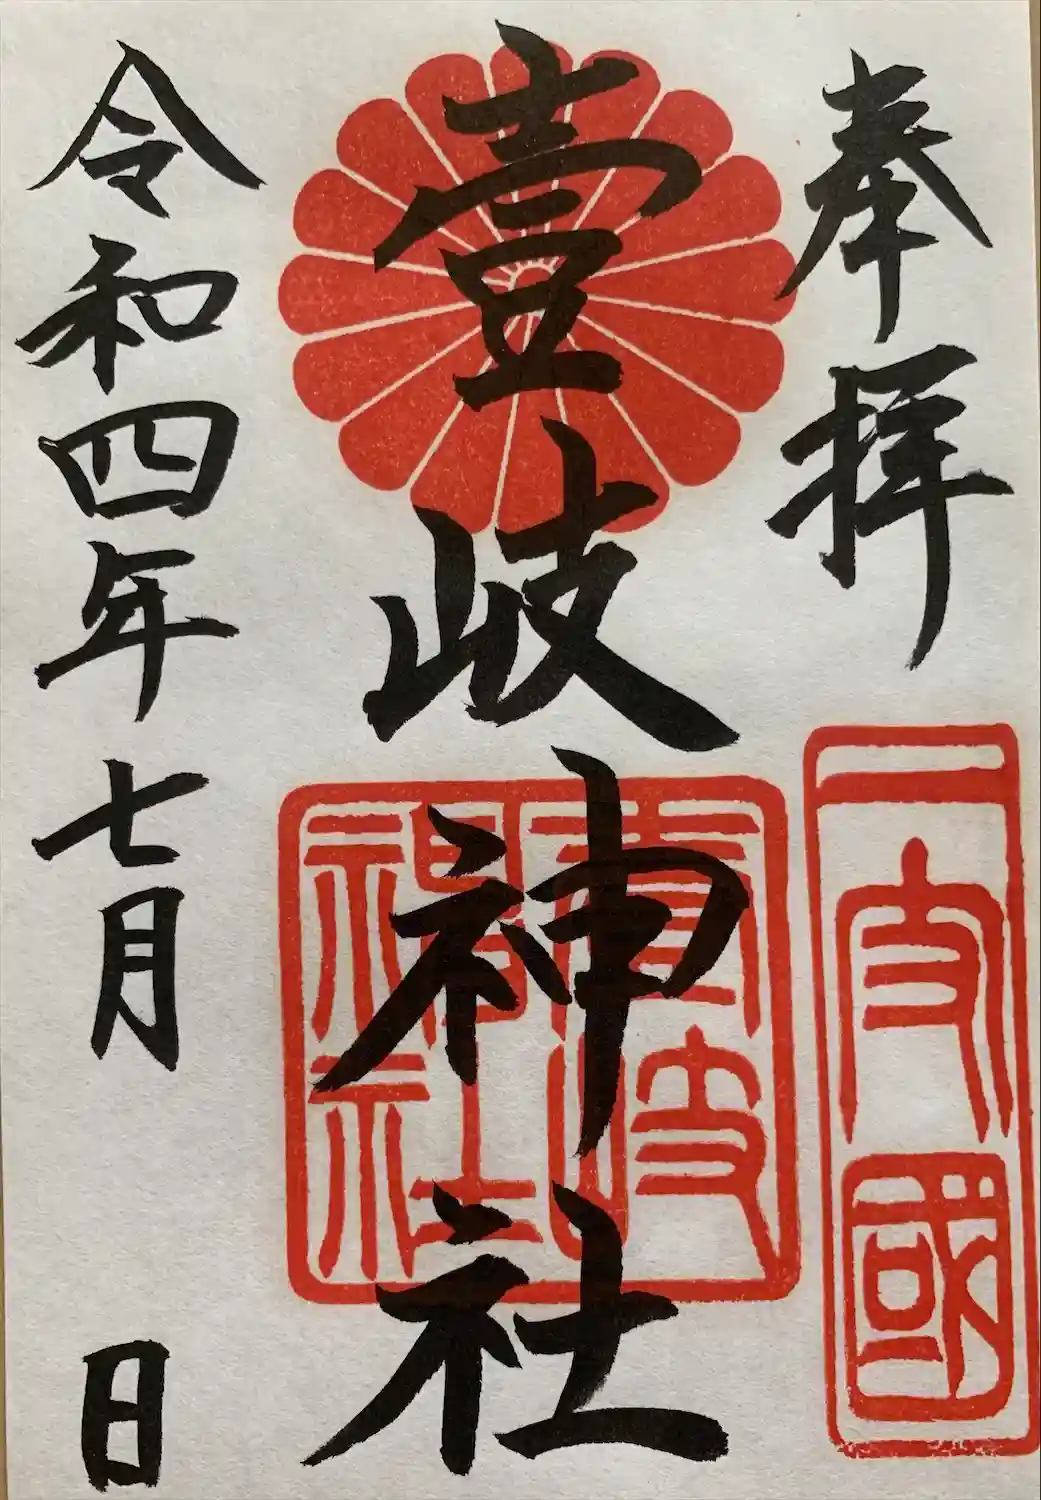 奉拝
一宮
壹岐神社
壹岐神社
令和四年七月 日